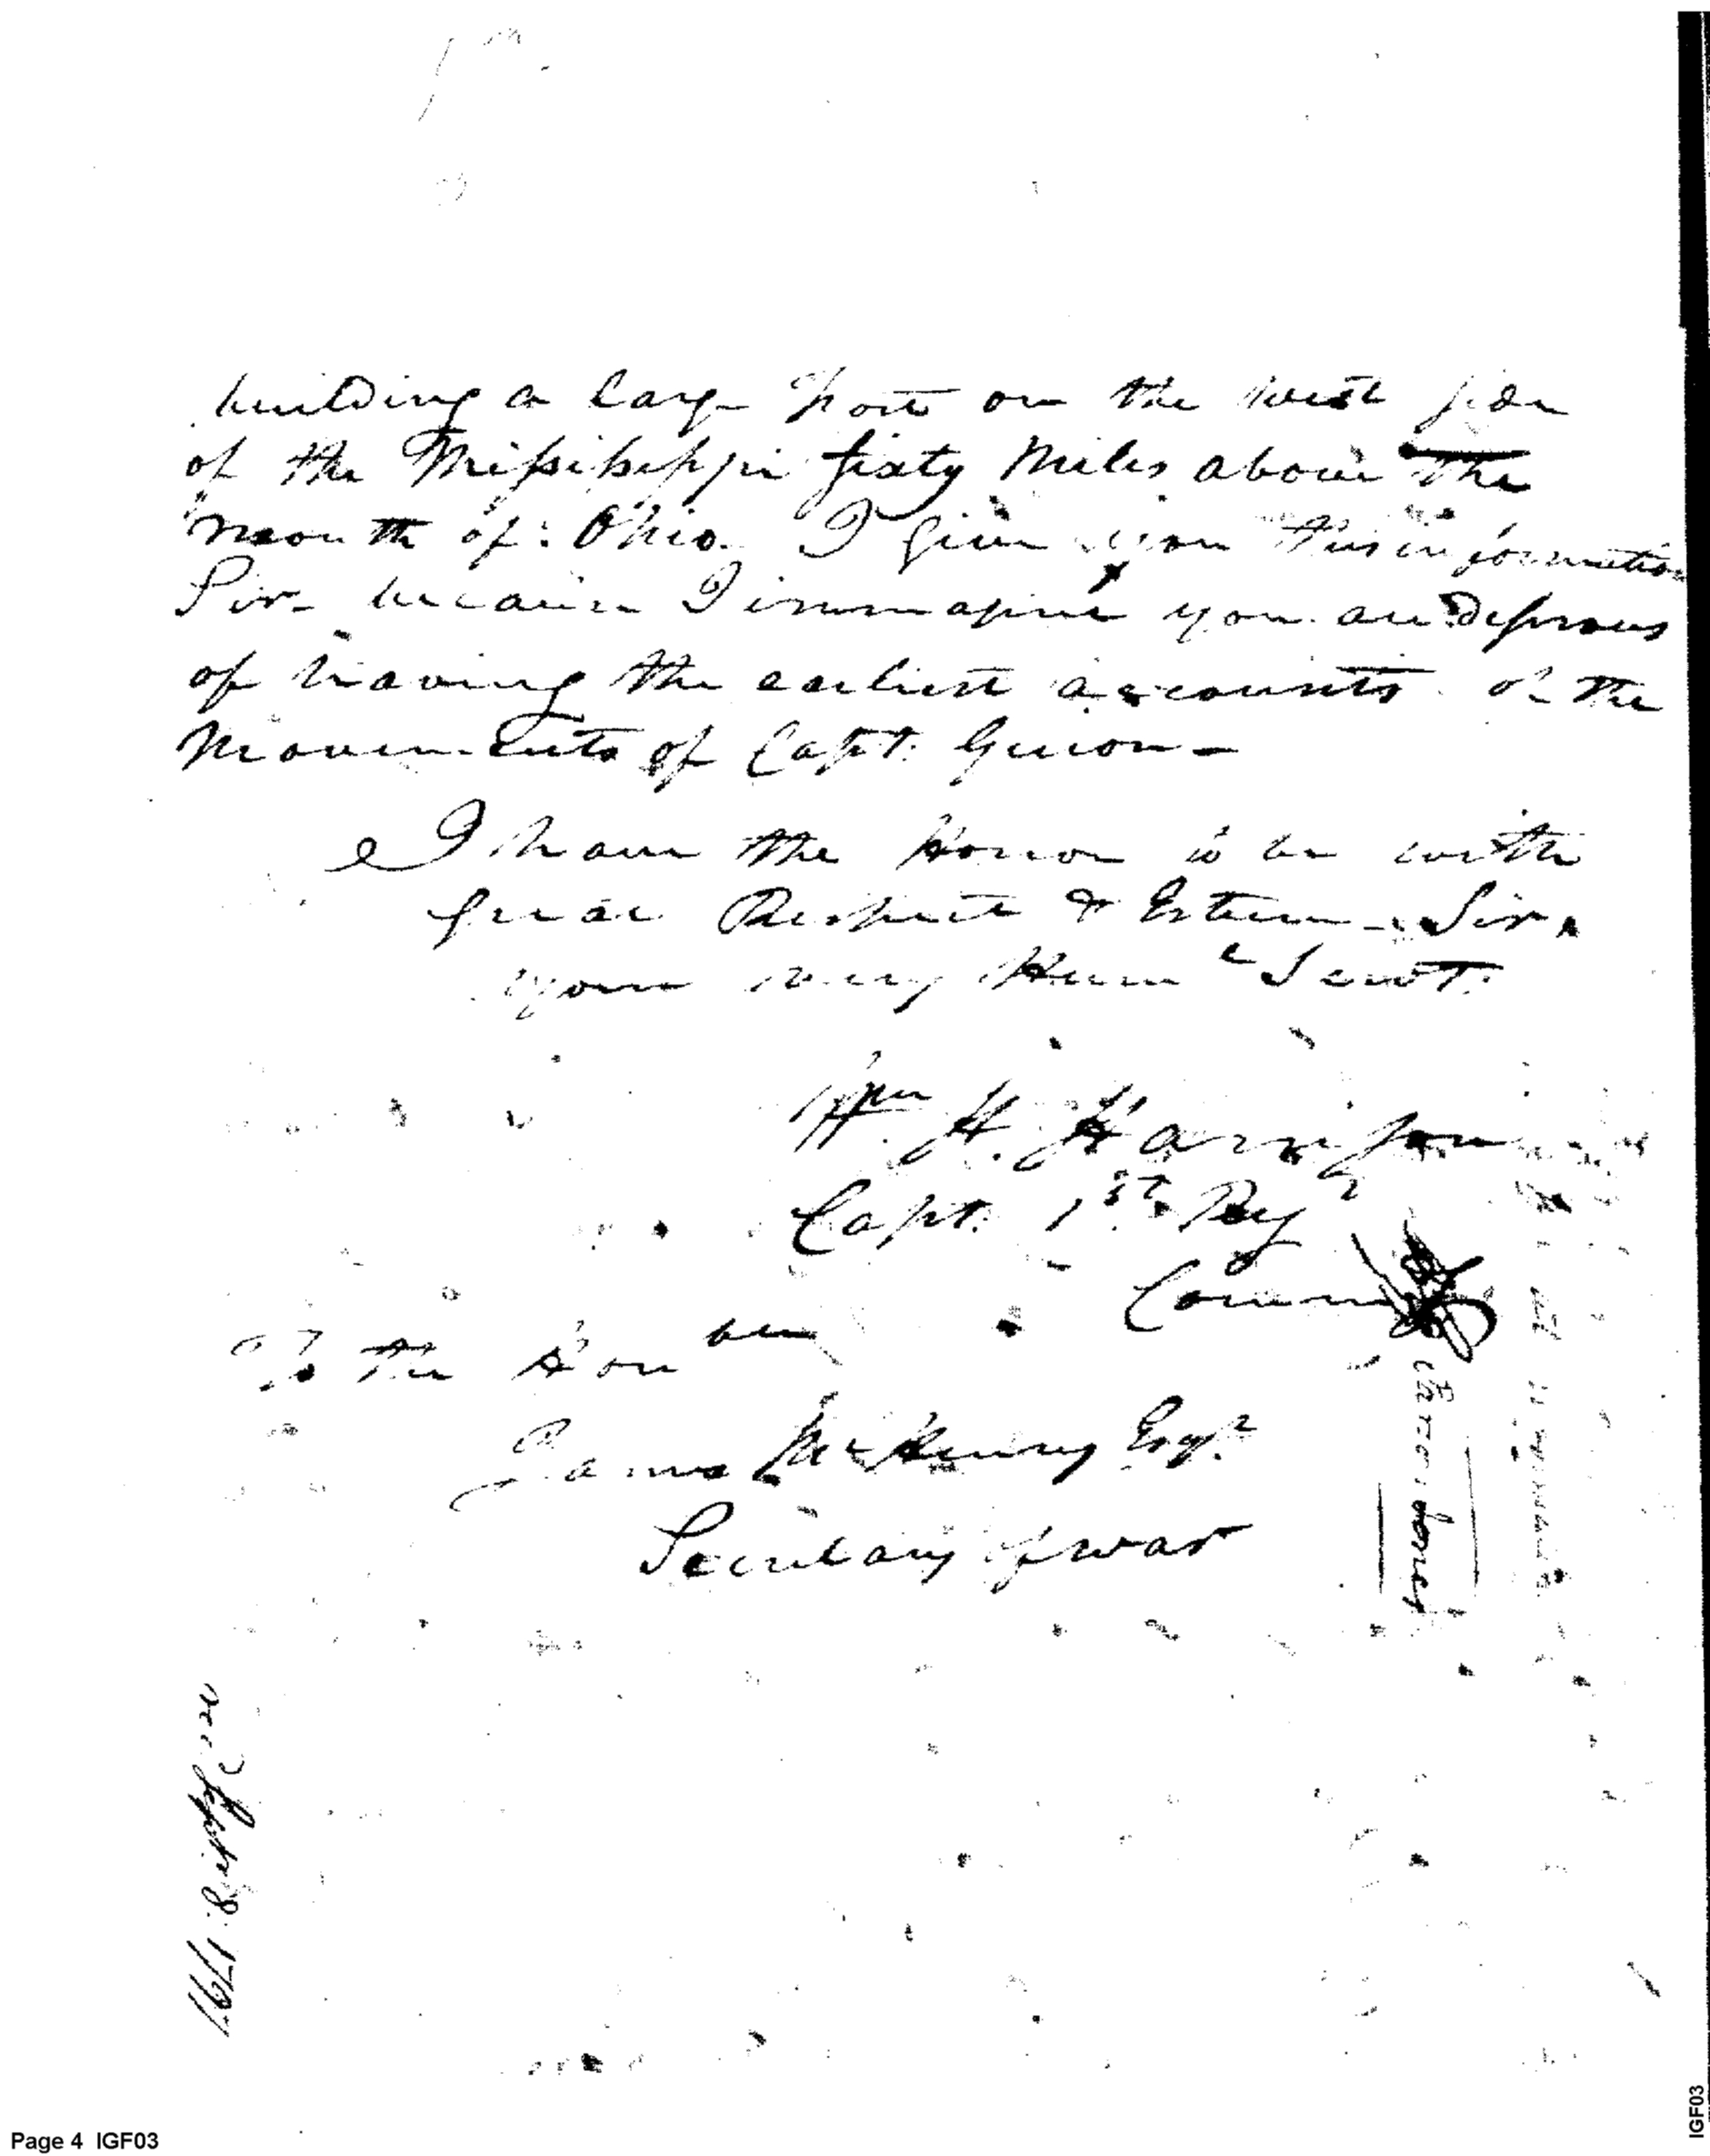 building a large Fort on the west side
of the Missisippi sixty Miles above the
mouth of Ohio. I give you this information
Sir because I immagine you are Desirous
of having the earliest accounts of the
movements of Capt. Guion -
I have the Honor to be with
great Respect & Esteem - Sir
your very Humle Servt.
Wm H. Harrison
Capt. 1st Reg
Comm
To the Honble
James McHenry Esqr.
Secretary of war
8. 1797
Page 4 IGF03
IGF03